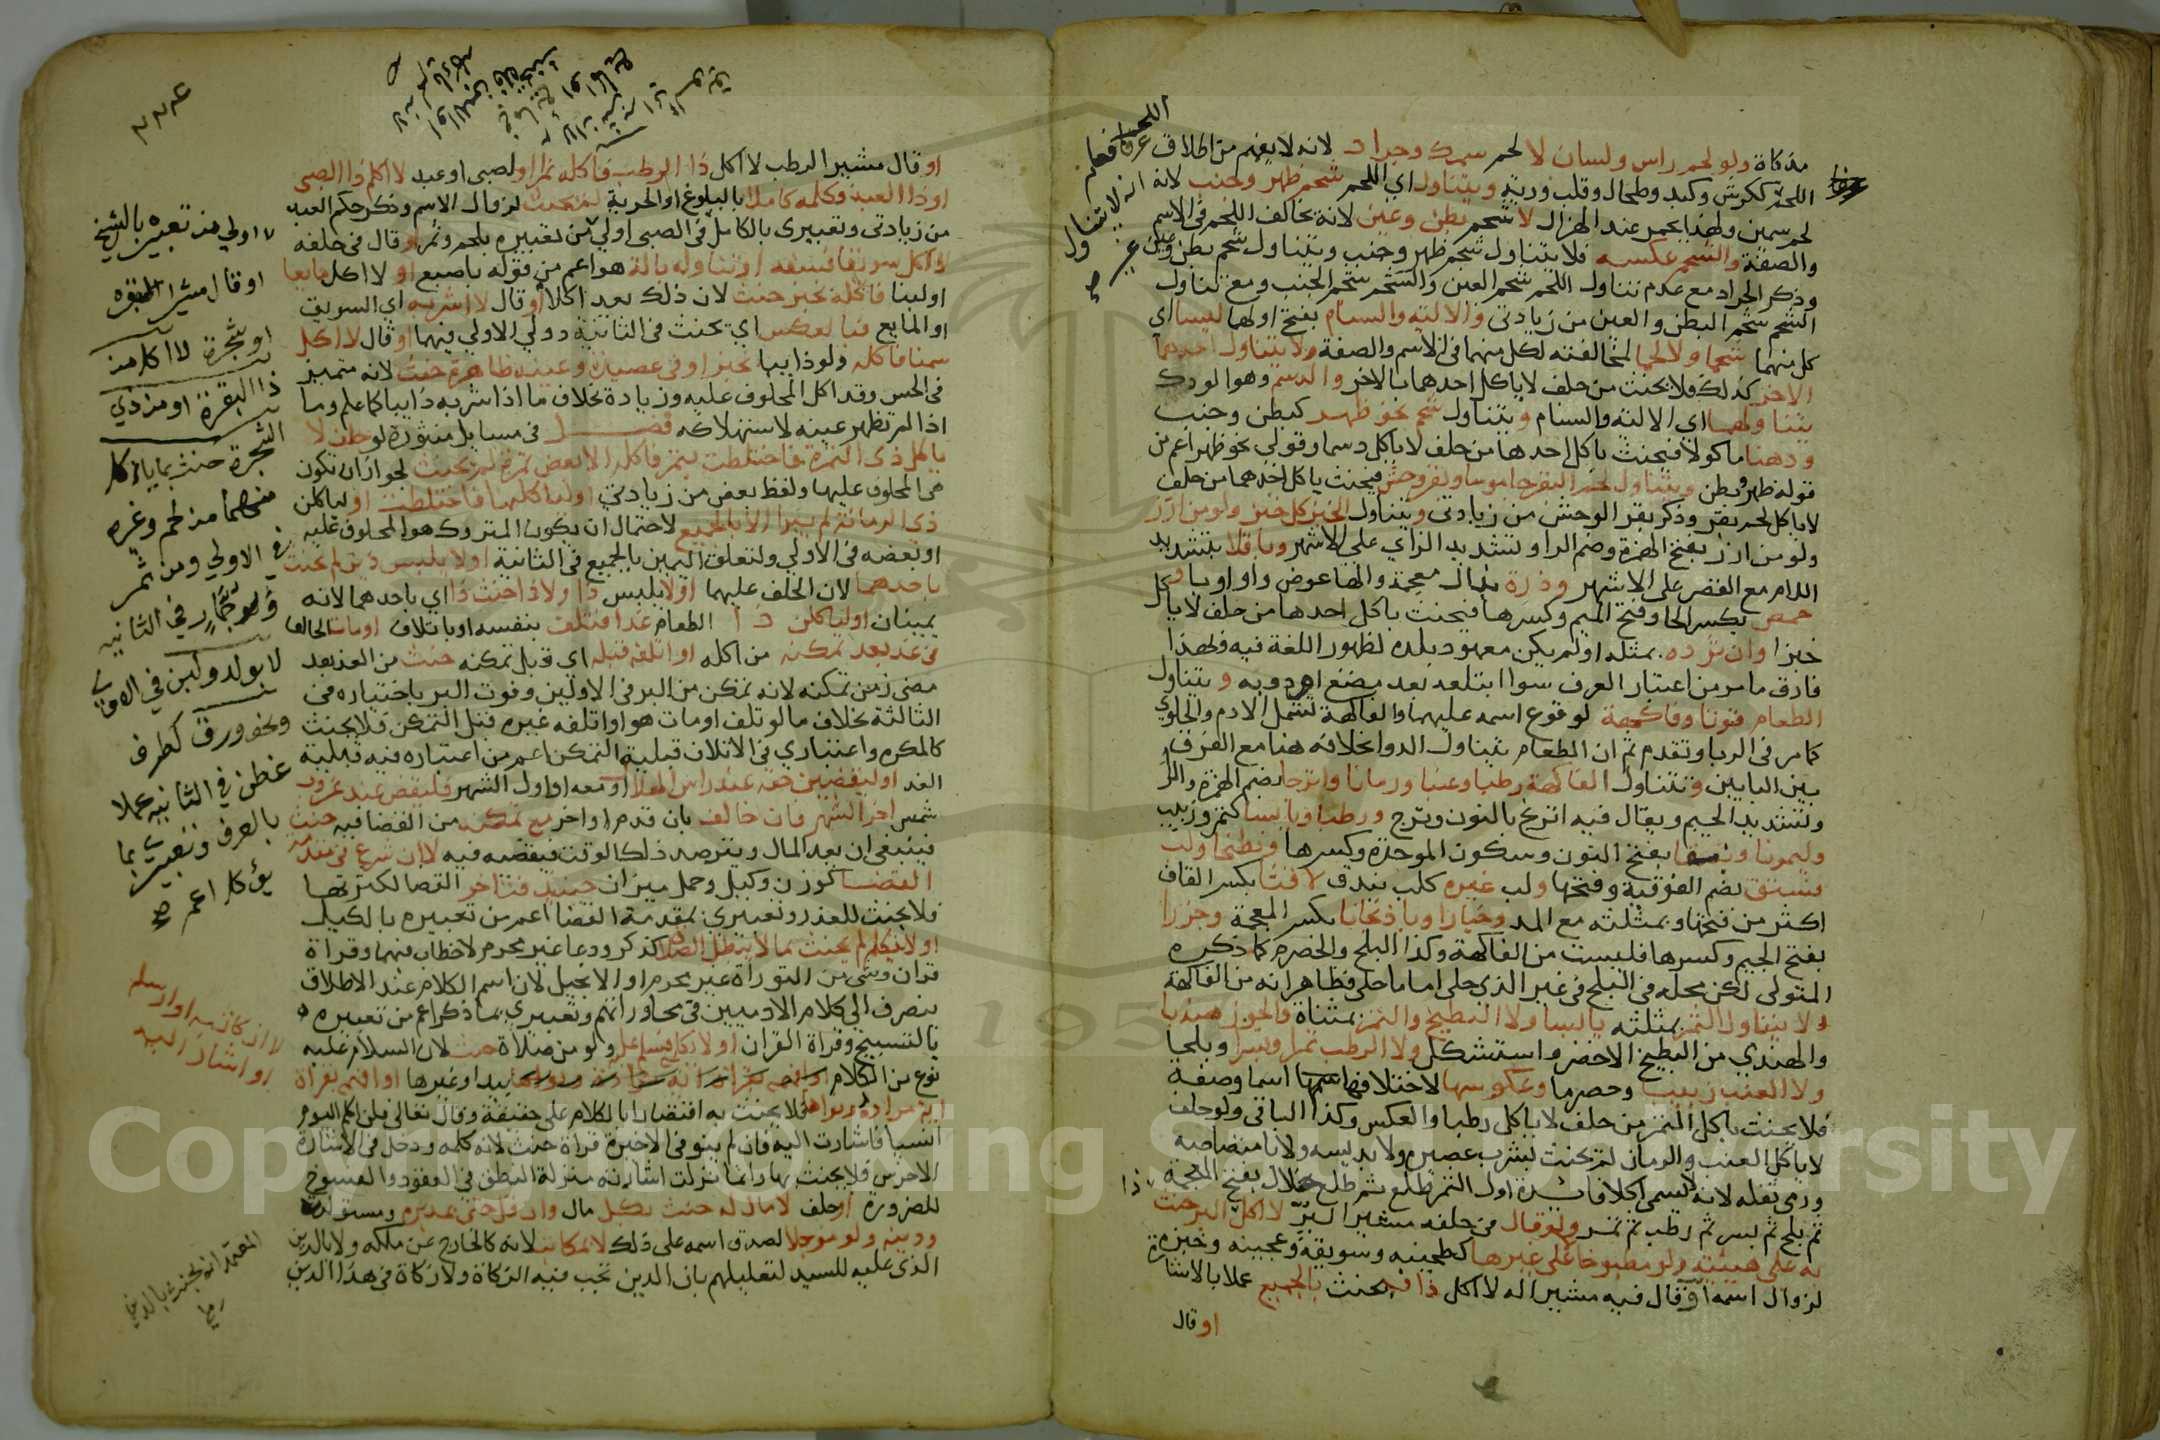 مذكاة ولو لحم راس ولسان لا لحم سمك وجراد لانه لا يفهم من اطلاق
اللحم ككرش وكبد وطحال وقلب ورية ويتناول اي اللحم شحم ظهر وجنب لانه
لحم سمين ولهذا يحمر عند الهزال لا شحم بطن وعين لانه يخالف اللحم في الاسم
والصفة والشحم عكسه فلا يتناول شحم ظهر وجنب ويتناول شحم بطن وعين
وذكر الجراد مع عدم تناول اللحم شحم العين والشحم شحم الجنب ومع تناول
الشحم شحم البطن والعين من زيادتي والالية والسنام بفتح اولهما ليسا اي
كل منهما شحما ولا لحما لمخالفته لكل منهما في الاسم والصفة ولا يتناول احدهما
الاخر كذلك فلا يحنث من حلف لا ياكل احدهما بالاخر والدسم وهو الودك
يتناولهما اي الالية والسنام ويتناول شحم نحو ظهر كبطن وجنب
ودهنا ماكولا فيحنث باكل احدها من حلف لا ياكل دسما وقولي نحو ظهر اعم من
قوله ظهر وبطن ويتناول لحم البقر جاموسا وبقر وحش فيحنث باكل احدهما من حلف
لا ياكل لحم بقر وذكر بقر الوحش من زيادتي ويتناول الخبز كل خبز ولو من ارز
ولو من ارز بفتح الهمزة وضم الرا وتشديد الزاي على الاشهر وباقلا بتشديد
اللام مع القصر على الاشهر وذرة بذال معجمة والها عوض واو او يا وكل
حمص بكسر الحا وفتح الميم وكسرها فيحنث باكل احدها من حلف لا ياكل
خبزا وان ثرده بمثلثة او لم يكن معهود بلده لظهور اللغة فيه وبهذا
فارق ما مر من اعتبار العرف سوا ابتلعه بعد مضغ ام دونه ويتناول
الطعام قوتا وفاكهة لوقوع اسمه عليهما والفاكهة تشمل الادم والحلوى
كما مر في الربا وتقدم ثم ان الطعام يتناول الدوا بخلافه هنا مع الفرق
بين البابين وتتناول الفاكهة رطبا وعنبا ورمانا واترجا بضم الهمزة والرا
وتشديد الجيم ويقال فيه اترنج بالنون وترج ورطبا ويابسا كتمر وزبيب
وليمونا ونبقا بفتح النون وسكون الموحدة وكسرها وبطيخا ولب
فستق بضم الفوقية وفتحها ولب غيره كلب بندق لا قثا بكسر القاف
اكثر من فتحها وبمثلثة مع المد وخيارا وباذنجانا بكسر المعجمة وجزرا
بفتح الجيم وكسرها فليست من الفاكهة وكذا البلح والحصرم كما ذكره
المتولي لكن محله في البلح في غير الذي حلى اما ما حلى فظاهر انه من الفاكهة
ولا يتناول الثمر بمثلثة يابسا ولا البطيخ والتمر بمثناة والجوز هنديا
والهندي من البطيخ الاخضر واستشكل ولا الرطب تمرا وبسرا وبلحا
ولا العنب زبيبا وحصرما وعكوسها لاختلافها اسما وصفة
فلا يحنث باكل التمر من حلف لا ياكل رطبا والعكس وكذا الباقي ولو حلف
لا ياكل العنب والرمان لم يحنث بشرب عصيره ولا دبسه ولا بامتصاصه
ورمى ثفله لانه لا يسمى اكلا فائدة اول التمر طلع ثم خلال بفتح المعجمة
ثم بلح ثم بسر ثم رطب ثم تمر ولو قال في حلفه مشيرا لبر لا اكل ذا البر حنث
به على هيئته ولو مطبوخا لا على غيرها كطحينه وسويقه وعجينه وخبزه
لزوال اسمه او قال فيه مشيرا له لا اكل ذا فيحنث بالجميع عملا بالاشارة
او قال
او قال مشيرا لرطب لا اكل ذا الرطب فاكله تمرا او لصبي او عبد لا اكلم ذا الصبي
او ذا العبد فكلمه كاملا بالبلوغ او الحرية لم يحنث لزوال الاسم وذكر حكم العبد
من زيادتي وتعبيري بالكامل في الصبي اولى من تعبيره بلحم وتمرا او قال في حلفه
لا اكل سويقا فسفه او تناوله بالة هو اعم من قوله باصبع او لا اكل مايعا
او لبنا فاكله بخبز حنث لان ذلك يعد اكلا او قال لا اشربه اي السويق
او المايع فبالعكس اي يحنث في الثانية دون الاولى فيهما او قال لا اكل
سمنا فاكله ولو ذايبا بخبز او في عصيدة وعينه ظاهرة حنث لانه متميز
في الحس وقد اكل المحلوف عليه وزيادة بخلاف ما اذا شربه ذايبا كما علم وما
اذا لم تظهر عينه لاستهلاكه فصل في مسايل منثورة لو حلف لا
ياكل ذي التمرة فاختلطت بتمر فاكله الا بعض تمرة لم يحنث لجواز ان تكون
هي المحلوف عليها ولفظ بعض من زيادتي او لياكلنها فاختلطت او لياكلن
ذي الرمانة لم يبر الا بالجميع لاحتمال ان يكون المتروك هو المحلوف عليه
او بعضه في الاولى ولتعلق اليمين بالجميع في الثانية او لا يلبس ذين لم يحنث
باحدهما لان الحلف عليهما او لا يلبس ذا ولا ذا حنث ذا اي باحدهما لانه
يمينان او لياكلن ذا الطعام غدا فتلف بنفسه او باتلاف او مات الحالف
في غد بعد تمكنه من اكله او اتلفه قبله اي قبل تمكنه حنث من الغد بعد
مضي زمن تمكنه لانه تمكن من البر في الاولين وفوت البر باختياره في
الثالثة بخلاف ما لو تلف او مات هو او اتلفه غيره قبل التمكن فلا يحنث
كالمكره واعتباري في الاتلاف قبلية التمكن اعم من اعتباره فيه قبلية
الغد او ليقضين حقه عند راس الهلال او معه او اول الشهر فليقض عند غروب
شمس اخر الشهر فان خالف بان قدم او اخر مع تمكنه من القضا فيه حنث
فينبغي ان يعد المال ويترصد ذلك الوقت فيقضيه فيه لا ان شرع في مقدمة
القضا كوزن وكيل وحمل ميزان حينيذ فتاخر القضا لكثرتها
فلا يحنث للعذر وتعبيري بمقدمة القضا اعم من تعبيره بالكيل
او لا يتكلم لم يحنث بما لا يبطل الصلاة كذكر ودعا غير محرم لا خطاب فيهما وقراة
قران وشي من التوراة غير محرم او الانجيل لان اسم الكلام عند الاطلاق
ينصرف الى كلام الادميين في محاوراتهم وتعبيري بما ذكر اعم من تعبيره
بالتسبيح وقراة القران او لا يكلمه فسلم عليه ولو من صلاة حنث لان السلام عليه
نوع من الكلام
اية مراده ونواها فلا يحنث به اقتصارا بالكلام على حقيقته وقال تعالى فلن اكلم اليوم
انسيا فاشارت اليه فان لم ينو في الاخيرة قراة حنث لانه كلمه ودخل في الاشارة
الاخرس فلا يحنث بها وانما نزلت اشارته منزلة النطق في العقود والفسوخ
للضرورة او حلف لا مال له حنث بكل مال وان قل حتى مدبره ومستولدته
ودينه ولو موجلا لصدق اسمه على ذلك لا مكاتب لانه كالخارج عن ملكه ولا بالدين
الذي عليه للسيد لتعليلهم بان الدين تجب فيه الزكاة ولا زكاة في هذا الدين
اولى من تعبيره بالشيخ
او قال مشيرا لبقره
او شجرة لا اكل من
ذا البقرة او من ذي
الشجرة حنث بما ياكل
منهما من لحم وغيره
في الاولى ومن ثمر
وجمار في الثانيه
لا بولد ولبن في الاولى
ونحو ورق كطرف
غصن في الثانيه عملا
بالعرف وتعبيري بما
يؤكل اعم صح
لا ان كاتبه او ارسله
او اشار اليه
المعتمد انه يحنث بالدين
Copyright © King Saud University
195